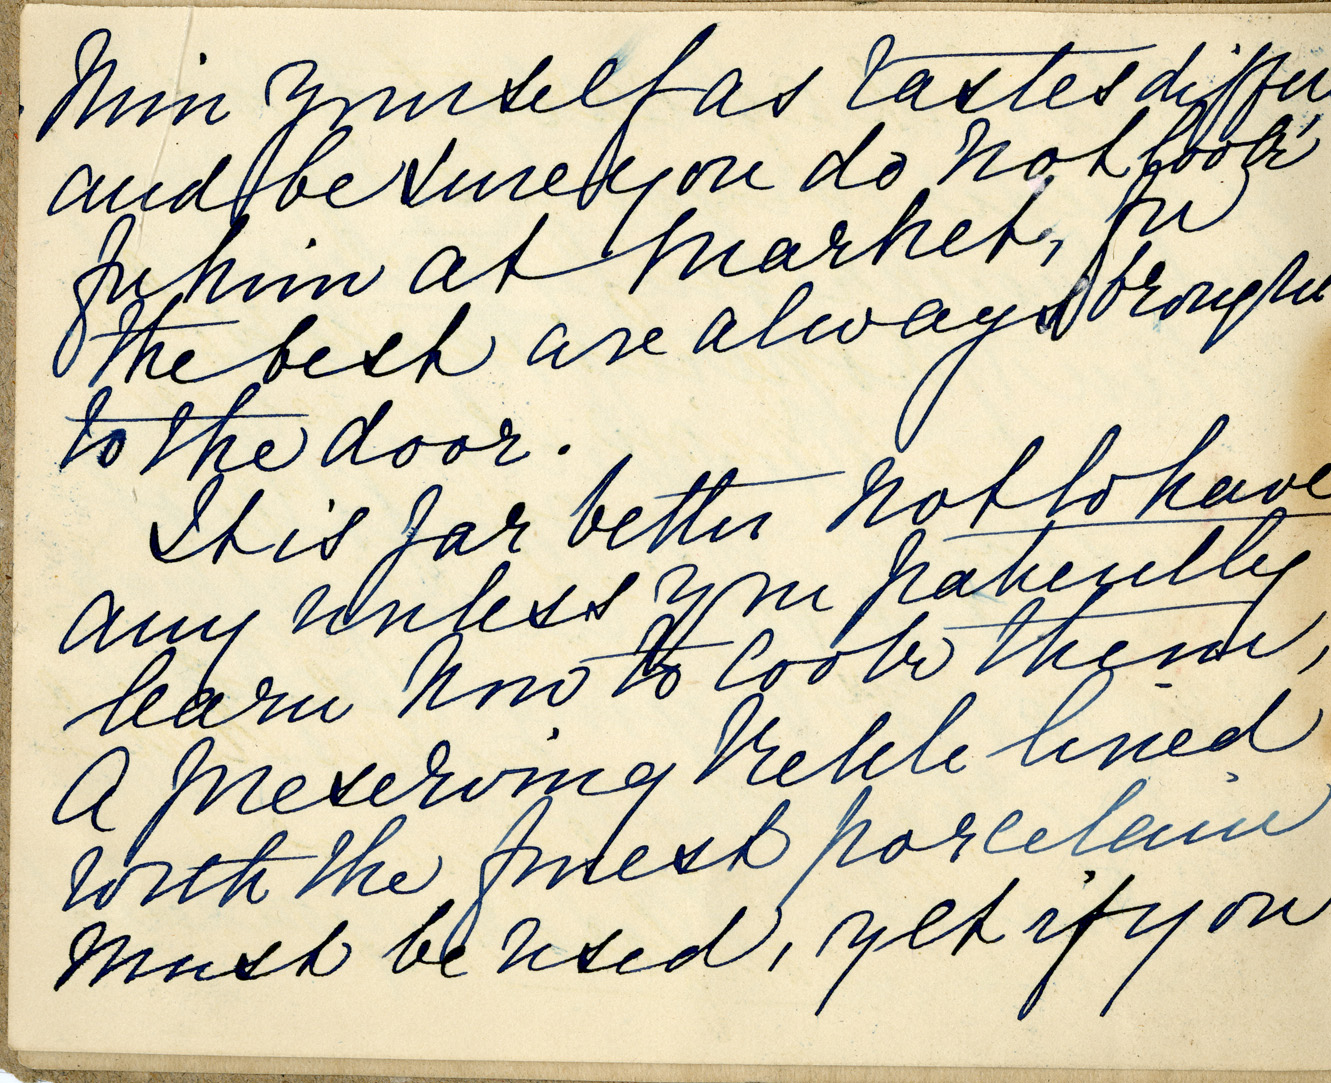 him yourself as tastes differ
and be sure you do not look
for him at market, for
the best are always brought
to the door.
It is far better not to have
any unless you patiently
learn how to cook them,
A preserving kettle lined
with the finest porcelain
must be used, yet if you